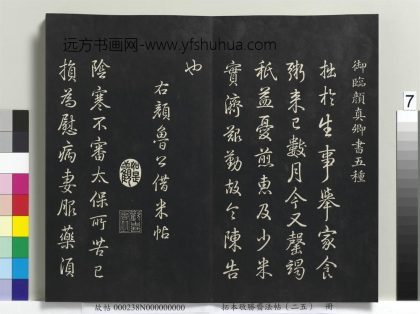 远方书画网-www.yfshuhua.com
御臨顏真卿書五種
拙於生事舉家食
粥來已數月今又罄竭
秖益憂煎惠及少米
實濟艱勤故令陳告
也
右顏魯公借米帖
陰寒不審太保所苦已
損為慰病妻服藥須
7
故帖 000238N000000000 拓本敬勝齋法帖（二五） 册